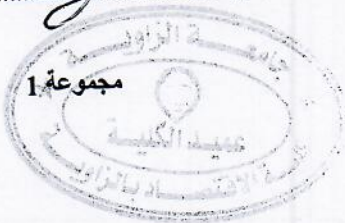 جامعة الزاوية
مجموعة 1
عميد الكلية
كلية الاقتصاد بالزاوية